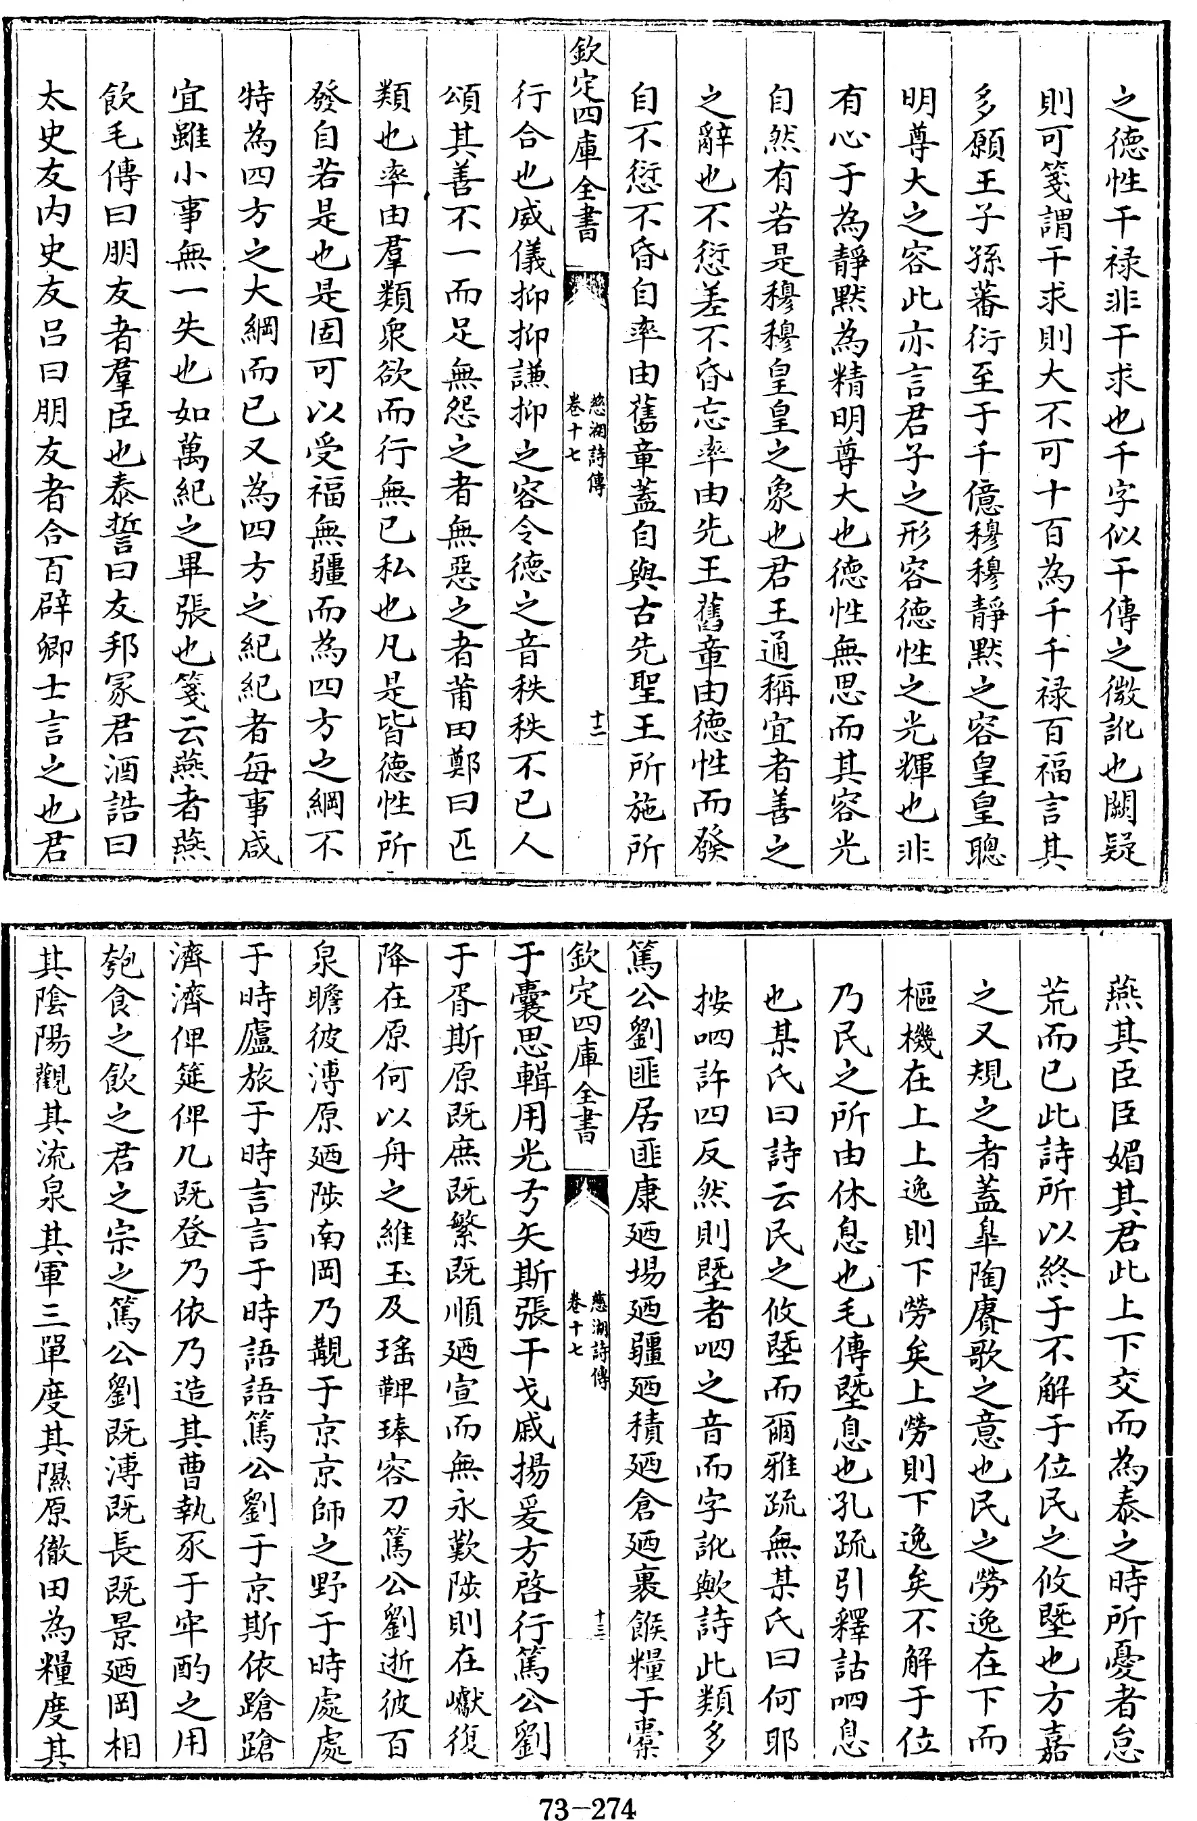 之德性干禄非干求也千字似干傳之微訛也闕疑
則可箋謂干求則大不可十百為千千禄百福言其
多願王子孫蕃衍至于千億穆穆靜默之容皇皇聰
明尊大之容此亦言君子之形容徳性之光輝也非
有心于為靜默為精明尊大也徳性無思而其容光
自然有若是穆穆皇皇之象也君王通稱宜者善之
之辭也不愆差不昏忘率由先王舊章由徳性而發
自不愆不昏自率由舊章蓋自與古先聖王所施所
欽定四庫全書
慈湖詩傳
卷十七
十二
行合也威儀抑抑謙抑之容令德之音秩秩不已人
頌其善不一而足無怨之者無惡之者莆田鄭曰匹
類也率由羣類衆欲而行無已私也凡是皆德性所
發自若是也是固可以受福無疆而為四方之綱不
特為四方之大綱而已又為四方之紀紀者每事咸
宜雖小事無一失也如萬紀之畢張也箋云燕者燕
飲毛傳曰朋友者羣臣也泰誓曰友邦冢君酒誥曰
太史友内史友吕曰朋友者合百辟卿士言之也君
燕其臣臣媚其君此上下交而為泰之時所憂者怠
荒而已此詩所以終于不解于位民之攸墍也方嘉
之又規之者蓋臯陶賡歌之意也民之勞逸在下而
樞機在上上逸則下勞矣上勞則下逸矣不解于位
乃民之所由休息也毛傳墍息也孔疏引釋詁呬息
也某氏曰詩云民之攸墍而爾雅疏無某氏曰何耶
按呬許四反然則墍者呬之音而字訛歟詩此類多
篤公劉匪居匪康廼場廼疆廼積廼倉廼裹餱糧于橐
欽定四庫全書
慈湖詩傳
卷十七
十三
于囊思輯用光弓矢斯張干戈戚揚爰方啓行篤公劉
于胥斯原既庶既繁既順廼宣而無永歎陟則在巘復
降在原何以舟之維玉及瑤鞞琫容刀篤公劉逝彼百
泉瞻彼溥原廼陟南岡乃覯于京京師之野于時處處
于時廬旅于時言言于時語語篤公劉于京斯依蹌蹌
濟濟俾筵俾几既登乃依乃造其曹執豕于牢酌之用
匏食之飲之君之宗之篤公劉既溥既長既景廼岡相
其陰陽觀其流泉其軍三單度其隰原徹田為糧度其
73-274